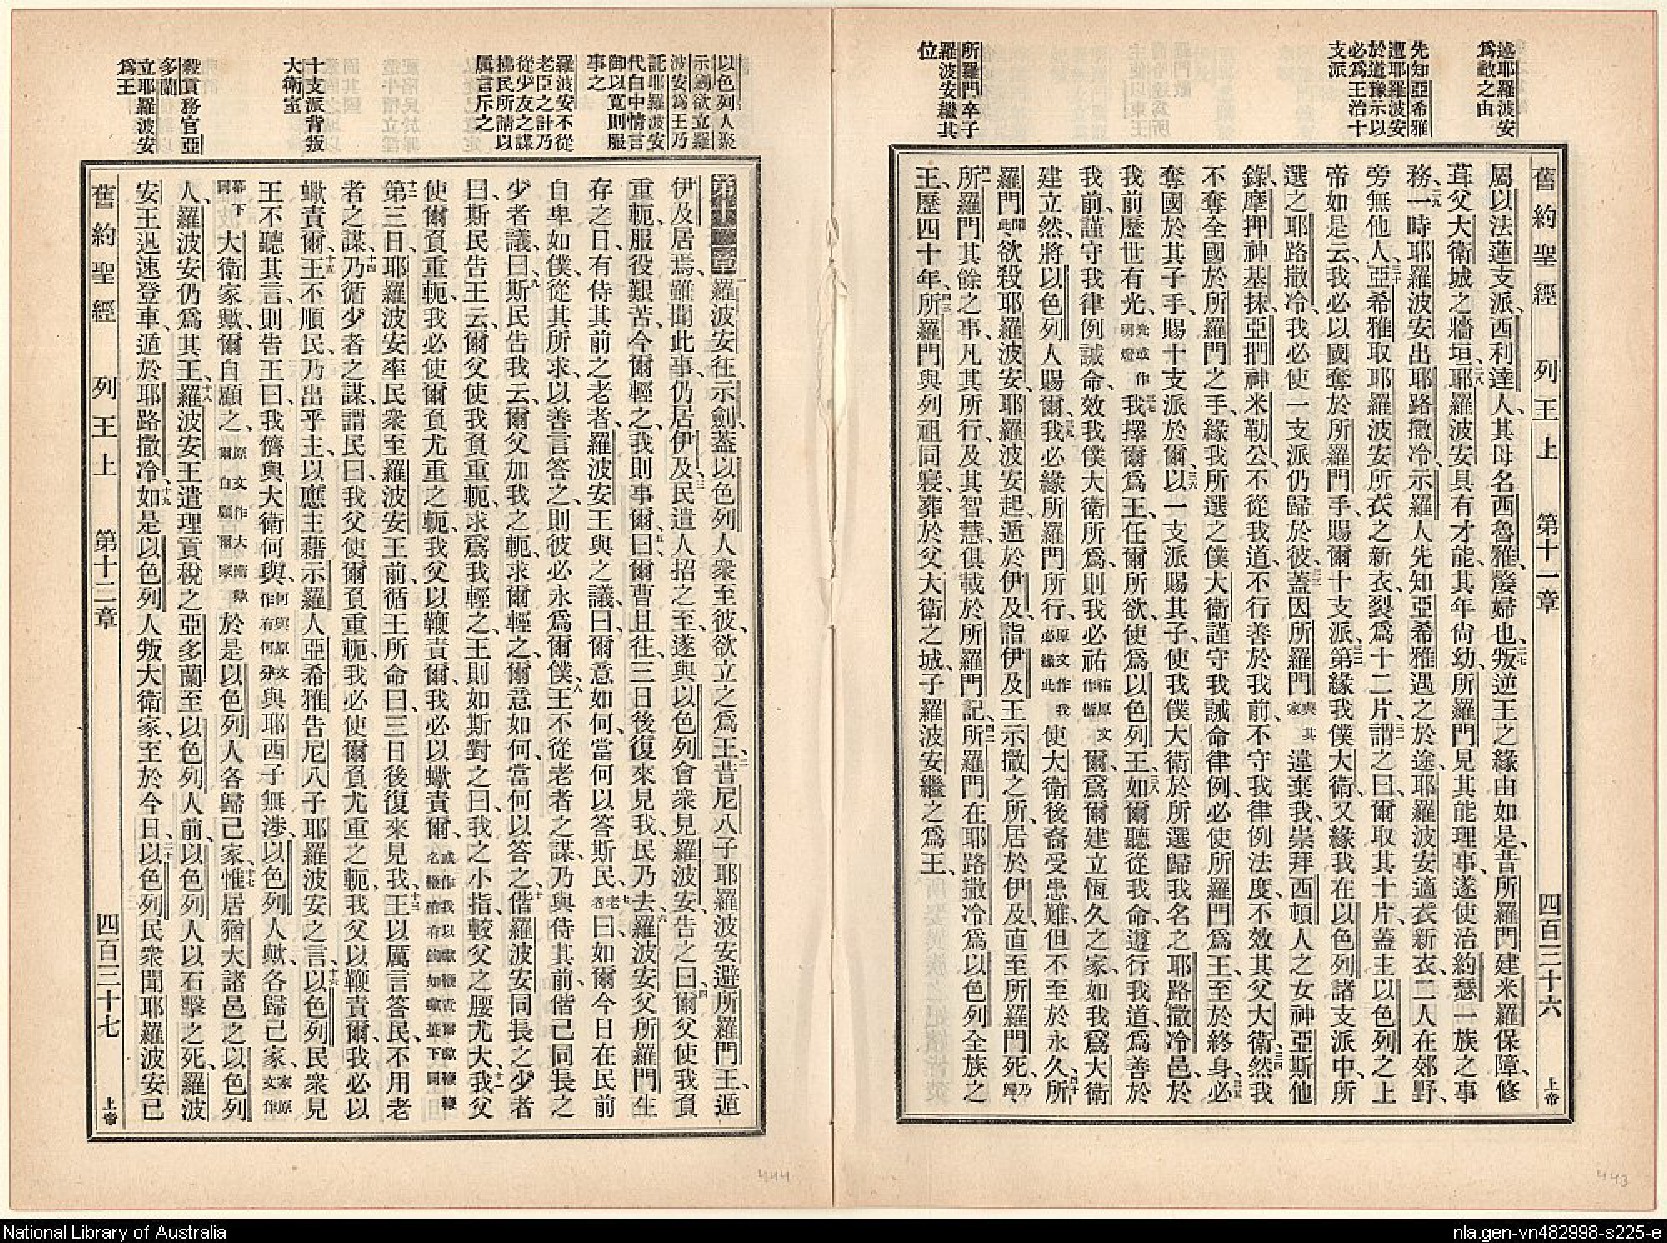 遶耶羅波安
為敵之由
先知亞希雅
遭耶羅波安
於道豫示以
必為王治十
支派
所羅門卒子
羅波安繼其
位
舊約聖經 列王上 第十一章 四百三十六 上帝
屬以法蓮支派西利達人其母名西魯雅嫠婦也二七叛逆王之緣由如是昔所羅門建米羅保障修
葺父大衛城之牆垣二八耶羅波安具有才能其年尚幼所羅門見其能理事遂使治約瑟一族之事
務二九一時耶羅波安出耶路撒冷示羅人先知亞希雅遇之於途耶羅波安適衣新衣二人在郊野
旁無他人三十亞希雅取耶羅波安所衣之新衣裂為十二片三一謂之曰爾取其十片蓋主以色列之上
帝如是云我必以國奪於所羅門手賜爾十支派三二第緣我僕大衛又緣我在以色列諸支派中所
選之耶路撒冷我必使一支派仍歸於彼三三蓋因所羅門與其家違棄我崇拜西頓人之女神亞斯他
錄摩押神基抹亞捫神米勒公不從我道不行善於我前不守我律例法度不效其父大衛三四然我
不奪全國於所羅門之手緣我所選之僕大衛謹守我誡命律例必使所羅門為王至於終身三五必
奪國於其子手賜十支派於爾三六以一支派賜其子使我僕大衛於所選歸我名之耶路撒冷邑於
我前歷世有光光或作明燈三七我擇爾為王任爾所欲使為以色列王三八如爾聽從我命遵行我道為善於
我前謹守我律例誡命效我僕大衛所為則我必祐祐原文作偕爾為爾建立恆久之家如我為大衛
建立然將以色列人賜爾三九我必緣所羅門所行原文作我必緣此使大衛後裔受患難但不至於永久四十所
羅門聞此欲殺耶羅波安耶羅波安起遁於伊及詣伊及王示撒之所居於伊及直至所羅門死乃歸
四一所羅門其餘之事凡其所行及其智慧俱載於所羅門記四二所羅門在耶路撒冷為以色列全族之
王歷四十年四三所羅門與列祖同寢葬於父大衛之城子羅波安繼之為王
以色列人聚
示劍欲立羅
波安為王乃
託耶羅波安
代白中情言
御以寬則服
事之
羅波安不從
老臣之計乃
從少友之謀
拂民所請以
厲言斥之
十支派背叛
大衛室
殺貢務官亞
多蘭
立耶羅波安
為王
第十二章一羅波安往示劍蓋以色列人衆至彼欲立之為王二昔尼八子耶羅波安避所羅門王遁
伊及居焉雖聞此事仍居伊及三民遣人招之至遂與以色列會衆見羅波安告之曰四爾父使我負
重軛服役艱苦今爾輕之我則事爾五曰爾曹且往三日後復來見我民乃去六羅波安父所羅門生
存之日有侍其前之老者羅波安王與之議曰爾意如何當何以答斯民七老者曰如爾今日在民前
自卑如僕從其所求以善言答之則彼必永為爾僕八王不從老者之謀乃與侍其前偕己同長之
少者議九曰斯民告我云爾父加我之軛求爾輕之爾意如何當何以答之十偕羅波安同長之少者
曰斯民告王云爾父使我負重軛求為我輕之王則如斯對之曰我之小指較父之腰尤大十一我父
使爾負重軛我必使爾負尤重之軛我父以鞭責爾我必以蠍責爾
十二第三日耶羅波安率民衆至羅波安王前循王所命曰三日後復來見我十三王以厲言答民不用老
者之謀十四乃循少者之謀謂民曰我父使爾負重軛我必使爾負尤重之軛我父以鞭責爾我必以
蠍責爾十五王不順民乃出乎主以應主藉示羅人亞希雅告尼八子耶羅波安之言十六以色列民衆見
王不聽其言則告王曰我儕與大衛何與何與原文作有何分與耶西子無涉以色列人歟各歸己家家原文作
幕下同大衛家歟爾自顧之原文作大衛歟爾自顧爾家於是以色列人各歸己家十七惟居猶大諸邑之以色列
人羅波安仍為其王十八羅波安王遣理貢稅之亞多蘭至以色列人前以色列人以石擊之死羅波
安王迅速登車遁於耶路撒冷十九如是以色列人叛大衛家至於今日二十以色列民衆聞耶羅波安已
舊約聖經 列王上 第十二章 四百三十七 上帝
444
443
National Library of Australia
nla.gen-vn482998-s225-e